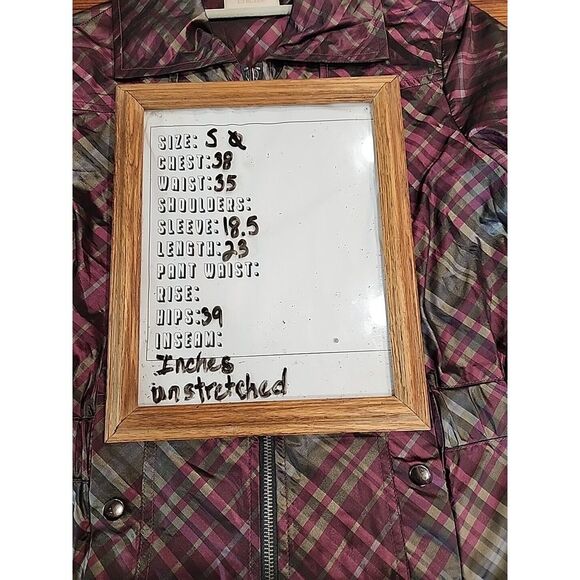 SIZE: S
CHEST: 38
WAIST: 35
SHOULDERS:
SLEEVE: 18.5
LENGTH: 23
PANT WAIST:
RISE:
HIPS: 39
INSEAM:
Inches
unstretched